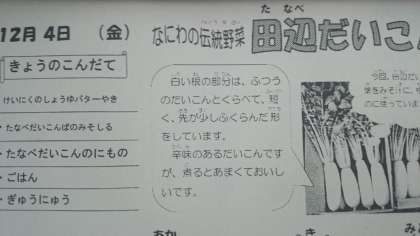 12月 4日 （金）
きょうのこんだて
けいにくのしょうゆバターやき
・たなべだいこんばのみそしる
・たなべだいこんのにもの
・ごはん
・ぎゅうにゅう
なにわの伝統野菜
でんとうやさい
たなべ
田辺だいこん
白い根の部分は、ふつう
のだいこんとくらべて、短
く、先が少しふくらんだ形
をしています。
辛味のあるだいこんです
が、煮るとあまくておいし
いです。
今回、